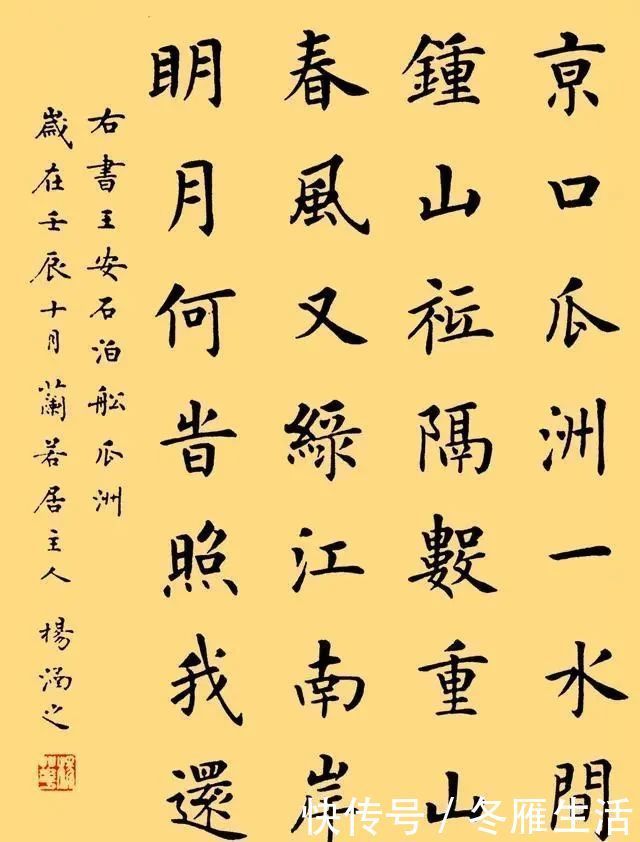 京口瓜洲一水間
鍾山祗隔數重山
春風又綠江南岸
明月何旹照我還
右書王安石泊舩瓜洲
歲在壬辰十月蘭若居主人 楊涵之
快传号/冬雁生活